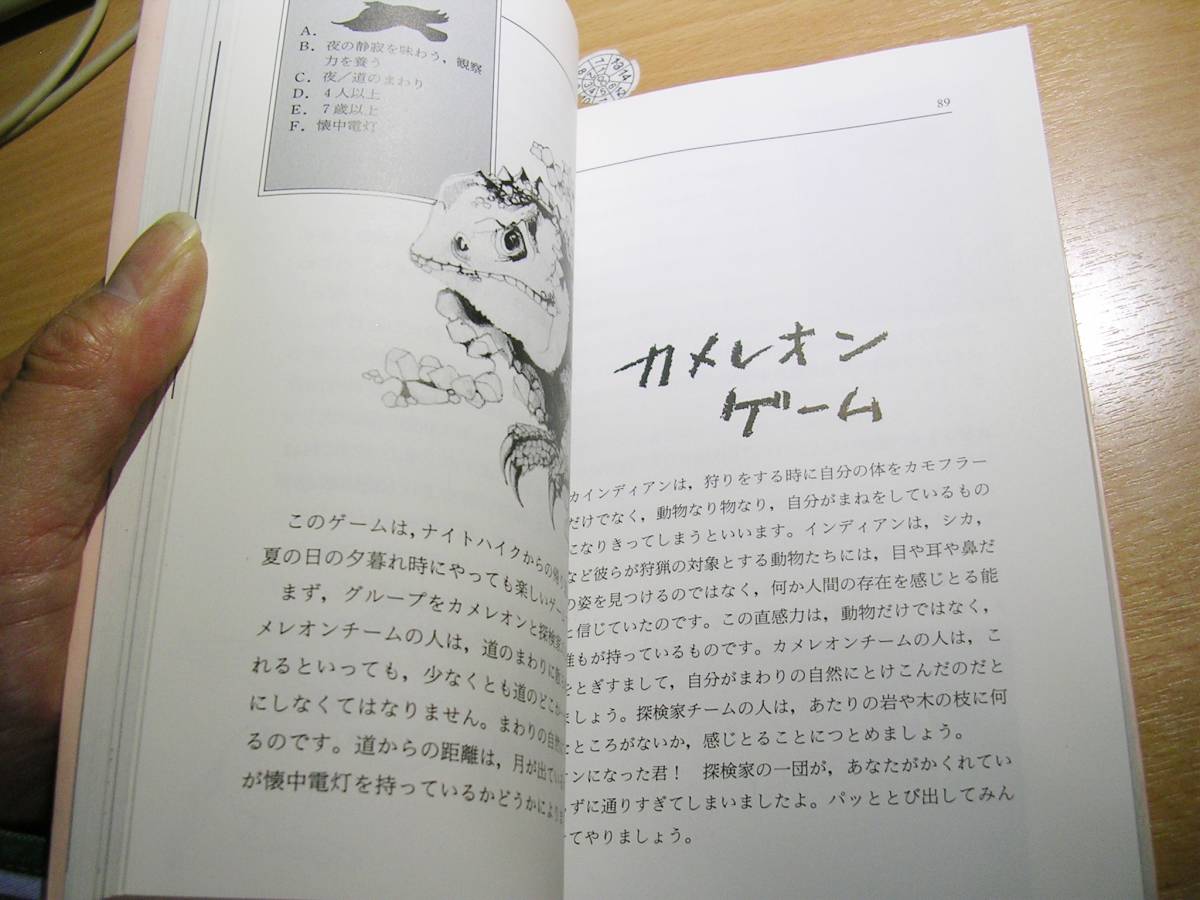 A.
B. 夜の静寂を味わう，観察
力を養う
C. 夜／道のまわり
D. 4人以上
E. 7歳以上
F. 懐中電灯
このゲームは，ナイトハイクからの帰り
夏の日の夕暮れ時にやっても楽しいゲー
まず，グループをカメレオンと探検家
メレオンチームの人は，道のまわりに
れるといっても，少なくとも道のどこか
にしなくてはなりません。まわりの自然
るのです。道からの距離は，月が出てい
が懐中電灯を持っているかどうかにより
89
カメレオン
ゲーム
カインディアンは，狩りをする時に自分の体をカモフラー
だけでなく，動物なり物なり，自分がまねをしているもの
になりきってしまうといいます。インディアンは，シカ，
など彼らが狩猟の対象とする動物たちには，目や耳や鼻だ
の姿を見つけるのではなく，何か人間の存在を感じとる能
と信じていたのです。この直感力は，動物だけではなく，
誰もが持っているものです。カメレオンチームの人は，こ
をとぎすまして，自分がまわりの自然にとけこんだのだと
ましょう。探検家チームの人は，あたりの岩や木の枝に何
たところがないか，感じとることにつとめましょう。
オンになった君！ 探検家の一団が，あなたがかくれてい
ずに通りすぎてしまいましたよ。パッととび出してみん
てやりましょう。